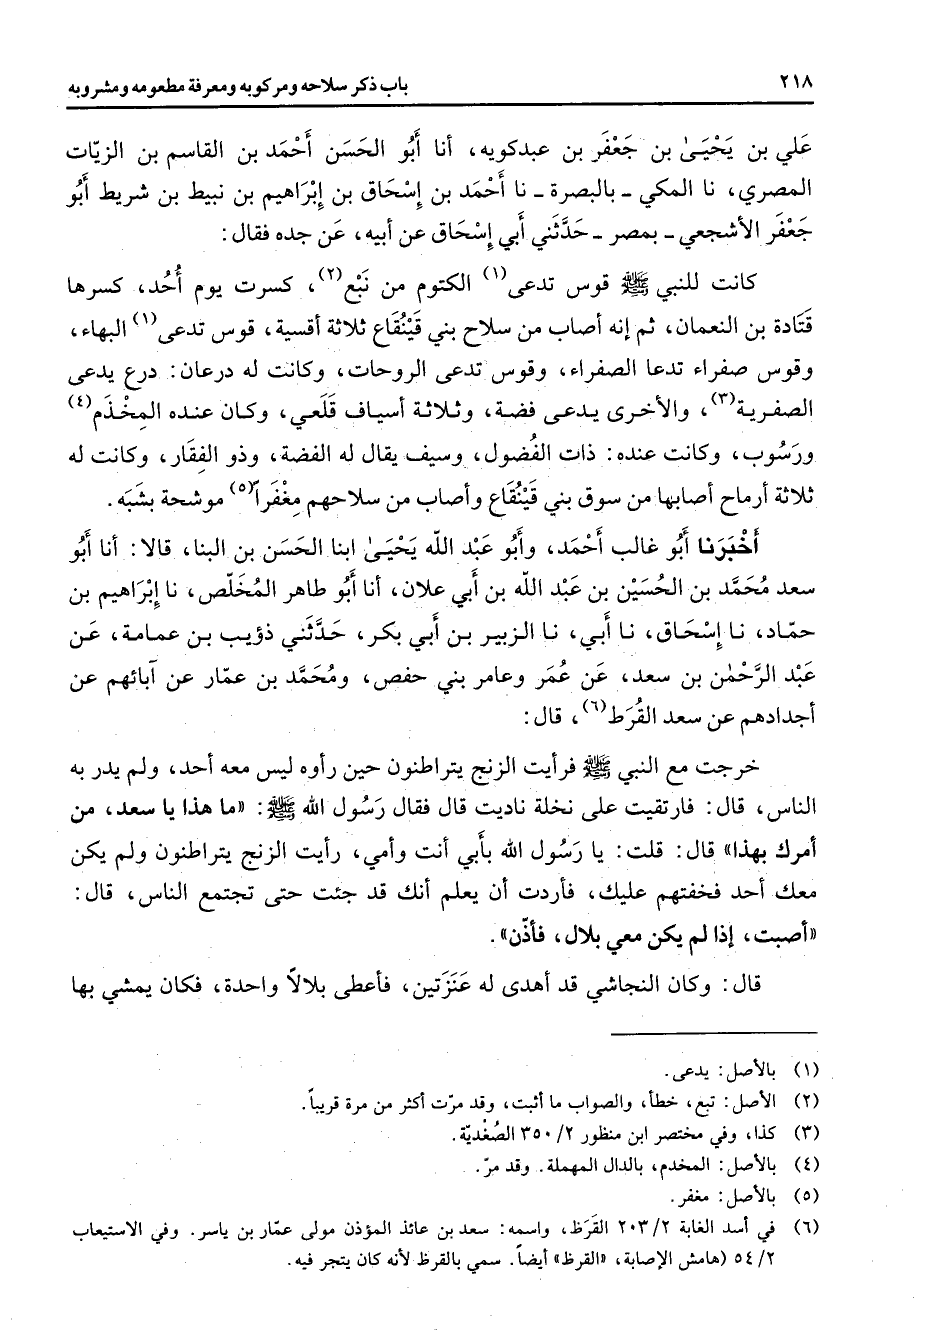 ٢١٨ باب ذكر سلاحه ومركوبه ومعرفة مطعومه ومشروبه
عَلي بن يَحْيَىٰ بن جَعْفَر بن عبدكويه، أنا أَبُو الحَسَن أَحْمَد بن القاسم بن الزيّات
المصري، نا المكي ـ بالبصرة ـ نا أَحْمَد بن إسْحَاق بن إبْرَاهيم بن نبيط بن شريط أَبُو
جَعْفَر الأشجعي ـ بمصر ـ حَدَّثَني أبي إسْحَاق عن أبيه، عَن جده فقال:
كانت للنبي ﷺ قوس تدعى(١) الكتوم من نَبْع(٢)، كسرت يوم أُحُد، كسرها
قَتَادة بن النعمان، ثم إنه أصاب من سلاح بني قَيْنُقَاع ثلاثة أقسية، قوس تدعى(١) البهاء،
وقوس صفراء تدعا الصفراء، وقوس تدعى الروحات، وكانت له درعان: درع يدعى
الصفرية(٣)، والأخرى يدعى فضة، وثلاثة أسياف قَلَعي، وكان عنده المِخْذَم(٤)
ورَسُوب، وكانت عنده: ذات الفُضول، وسيف يقال له الفضة، وذو الفِقَار، وكانت له
ثلاثة أرماح أصابها من سوق بني قَيْنُقَاع وأصاب من سلاحهم مِغْفَراً(٥) موشحة بشَبَه.
أَخْبَرَنا أَبُو غالب أَحْمَد، وأَبُو عَبْد اللّه يَحْيَىٰ ابنا الحَسَن بن البنا، قالا: أنا أَبُو
سعد مُحَمَّد بن الحُسَيْن بن عَبْد اللّه بن أَبي علان، أنا أَبُو طاهر المُخَلّص، نا إبْرَاهيم بن
حمّاد، نا إسْحَاق، نا أبي، نا الزبير بن أَبي بكر، حَدَّثَني ذؤيب بن عمامة، عَن
عَبْد الرَّحْمٰن بن سعد، عَن عُمَر وعامر بني حفص، ومُحَمَّد بن عمّار عن آبائهم عن
أجدادهم عن سعد القُرَط(٦)، قال:
خرجت مع النبي ﷺ فرأيت الزنج يتراطنون حين رأوه ليس معه أحد، ولم يدر به
الناس، قال: فارتقيت على نخلة ناديت قال فقال رَسُول الله ﷺ: «ما هذا يا سعد، من
أمرك بهذا» قال: قلت: يا رَسُول الله بأَبي أنت وأمي، رأيت الزنج يتراطنون ولم يكن
معك أحد فخفتهم عليك، فأردت أن يعلم أنك قد جئت حتى تجتمع الناس، قال:
«أصبت، إذا لم يكن معي بلال، فأذّن».
قال: وكان النجاشي قد أهدى له عَنَزَتين، فأعطى بلالاً واحدة، فكان يمشي بها
(١) بالأصل: يدعى.
(٢) الأصل: تبع، خطأ، والصواب ما أثبت، وقد مرّت أكثر من مرة قريباً.
(٣) كذا، وفي مختصر ابن منظور ٢/ ٣٥٠ الصُغْديّة.
(٤) بالأصل: المخدم، بالدال المهملة. وقد مرّ.
(٥) بالأصل: مغفر.
(٦) في أسد الغابة ٢/ ٢٠٣ القَرَظ، واسمه: سعد بن عائذ المؤذن مولى عمّار بن ياسر. وفي الاستيعاب
٢/ ٥٤ (هامش الإصابة، «القرظ» أيضاً. سمي بالقرظ لأنه كان يتجر فيه.